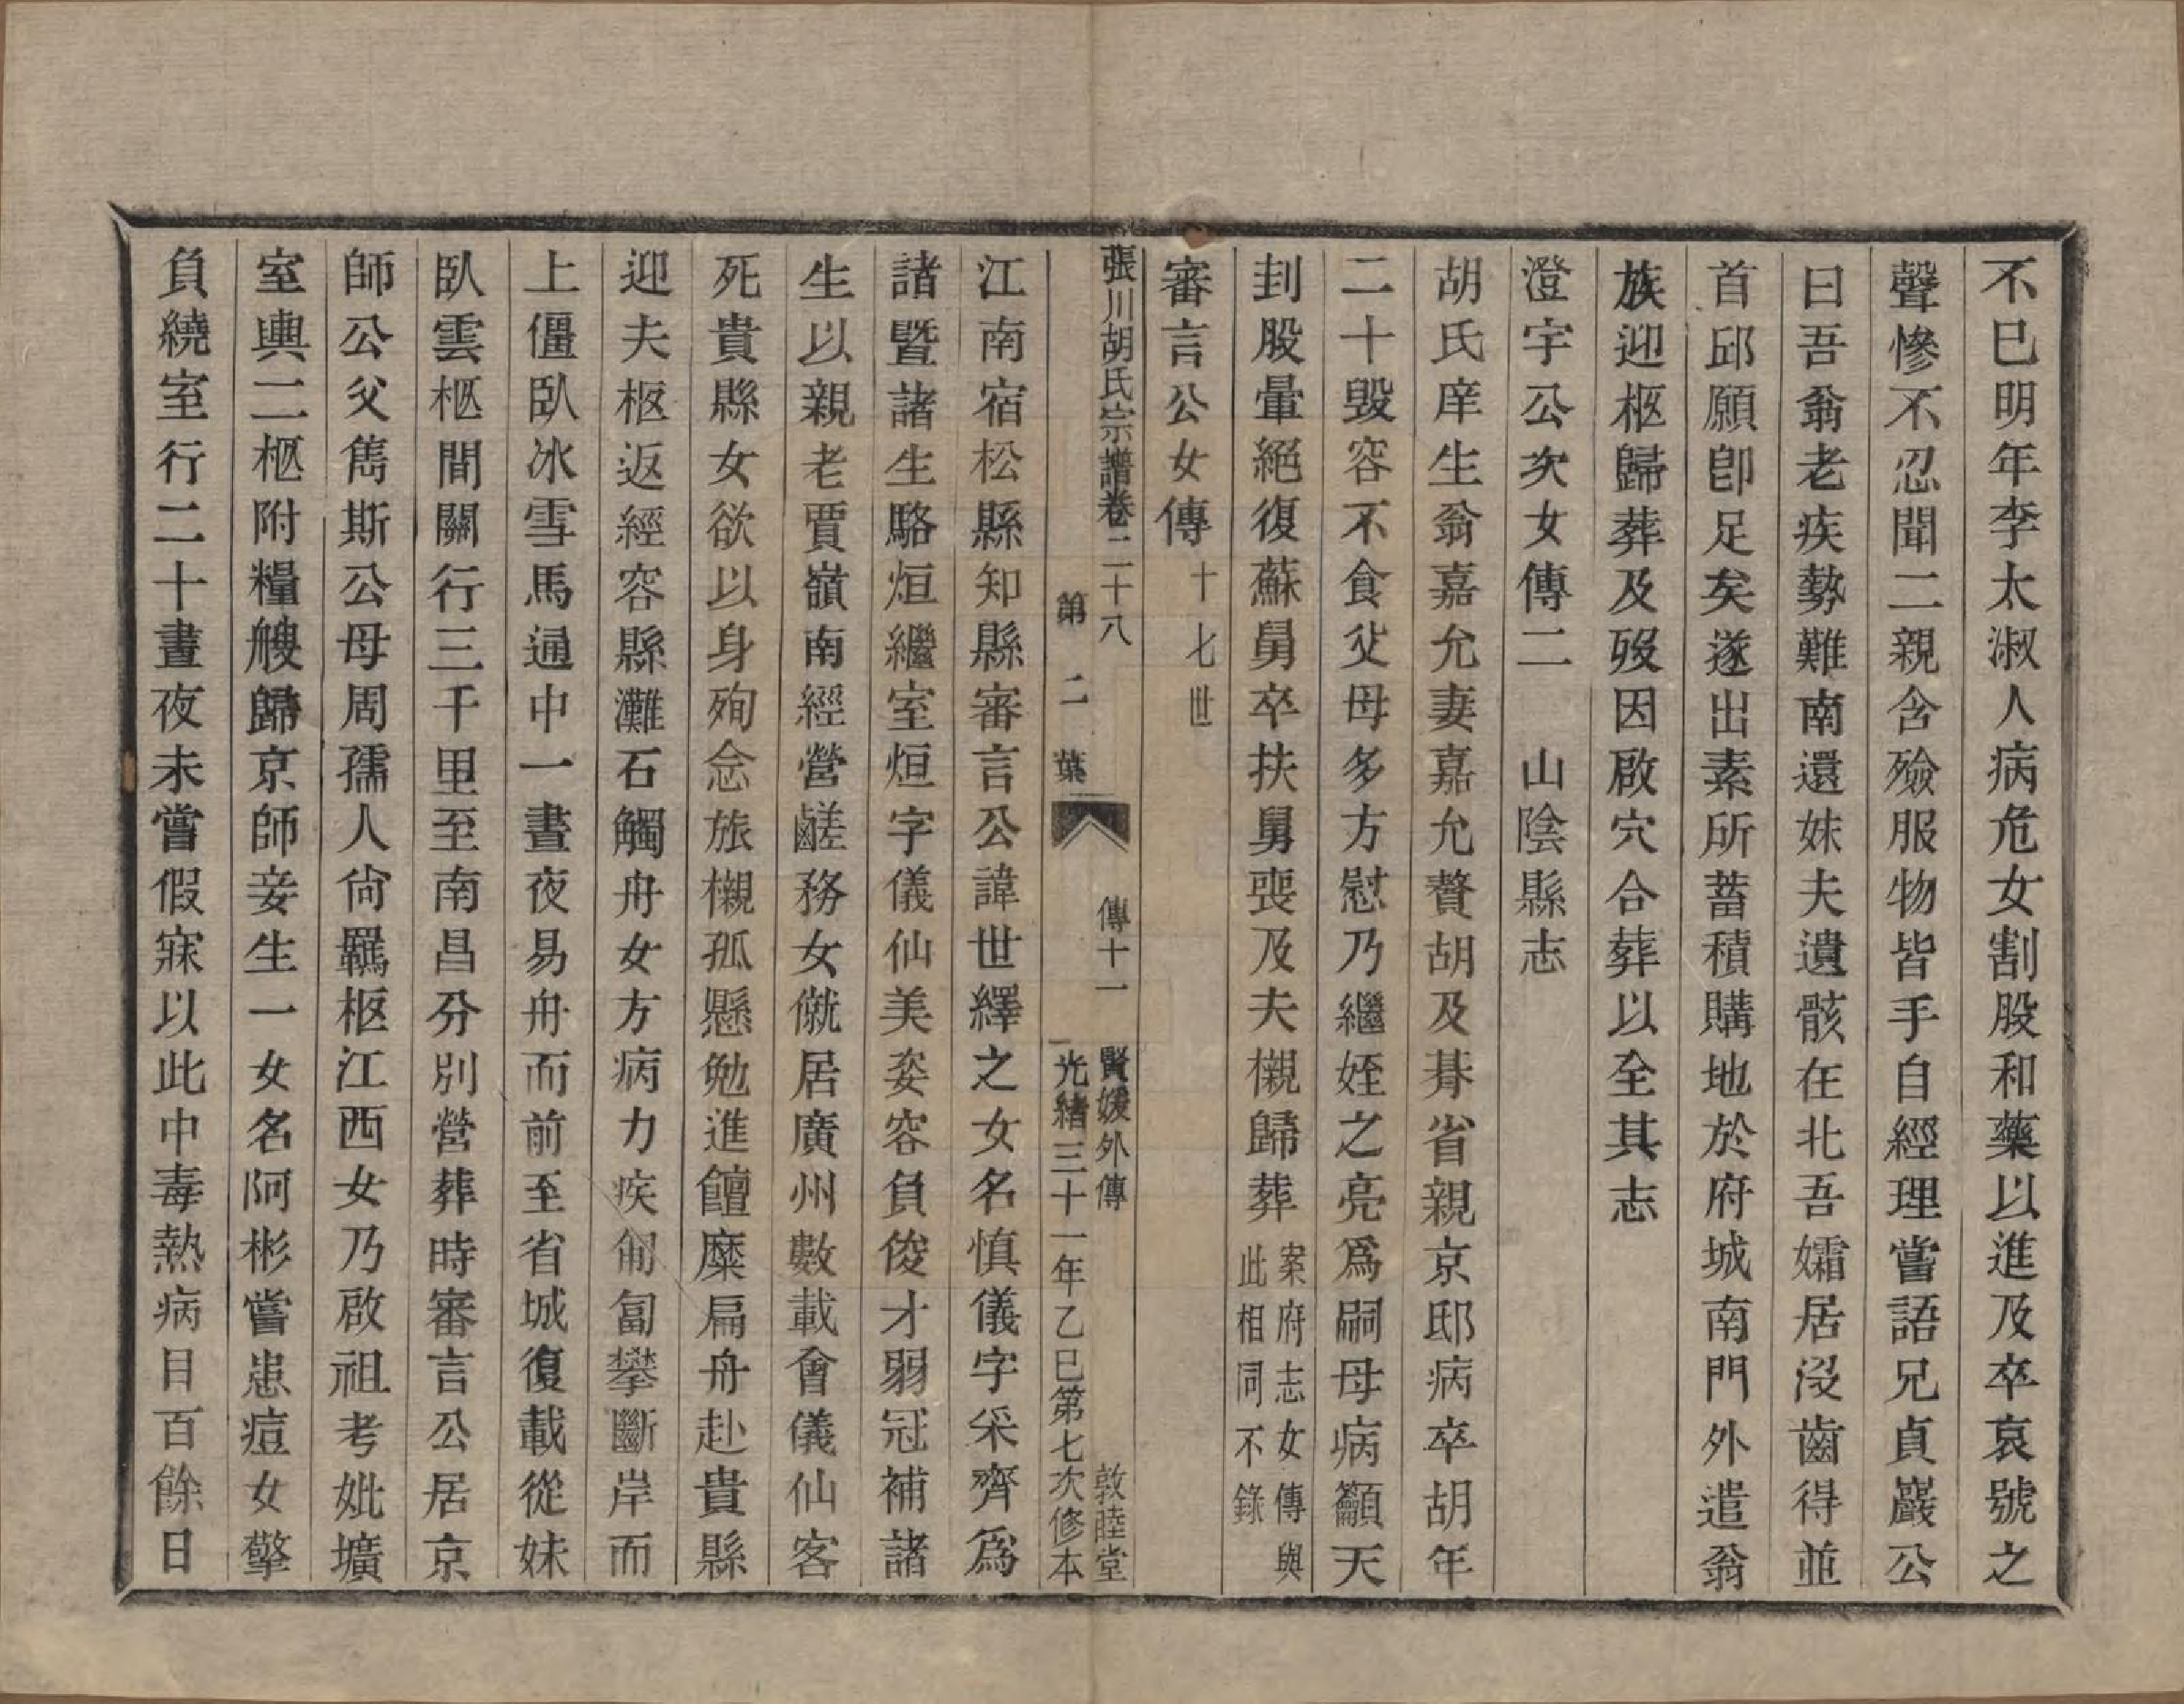 不已明年李太淑人病危女割股和藥以進及卒哀號之
聲慘不忍聞二親含殮服物皆手自經理嘗語兄貞巖公
曰吾翁老疾勢難南還妹夫遺骸在北吾孀居没齒得並
首邱願卽足矣遂出素所蓄積購地於府城南門外遣翁
族迎柩歸葬及歿因啟穴合葬以全其志
澄宇公次女傳二　山陰縣志
胡氏庠生翁嘉允妻嘉允贅胡及朞省親京邸病卒胡年
二十毁容不食父母多方慰乃繼姪之亮爲嗣母病籲天
刲股暈絕復蘇舅卒扶舅喪及夫櫬歸葬案府志女傳與此相同不錄
審言公女傳　十七世
張川胡氏宗譜卷二十八　傳十一　賢媛外傳　敦睦堂
第二葉　光緒三十一年乙巳第七次修本
江南宿松縣知縣審言公諱世繹之女名慎儀字采齊爲
諸暨諸生駱烜繼室烜字儀仙美姿容負俊才弱冠補諸
生以親老賈嶺南經營鹺務女僦居廣州數載會儀仙客
死貴縣女欲以身殉念旅櫬孤懸勉進饘糜扁舟赴貴縣
迎夫柩返經容縣灘石觸舟女方病力疾匍匐攀斷岸而
上僵臥冰雪馬通中一晝夜易舟而前至省城復載從妹
臥雲柩間關行三千里至南昌分別營葬時審言公居京
師公父雋斯公母周孺人尙羈柩江西女乃啟祖考妣壙
室輿二柩附糧艘歸京師妾生一女名阿彬嘗患痘女擎
負繞室行二十晝夜未嘗假寐以此中毒熱病目百餘日